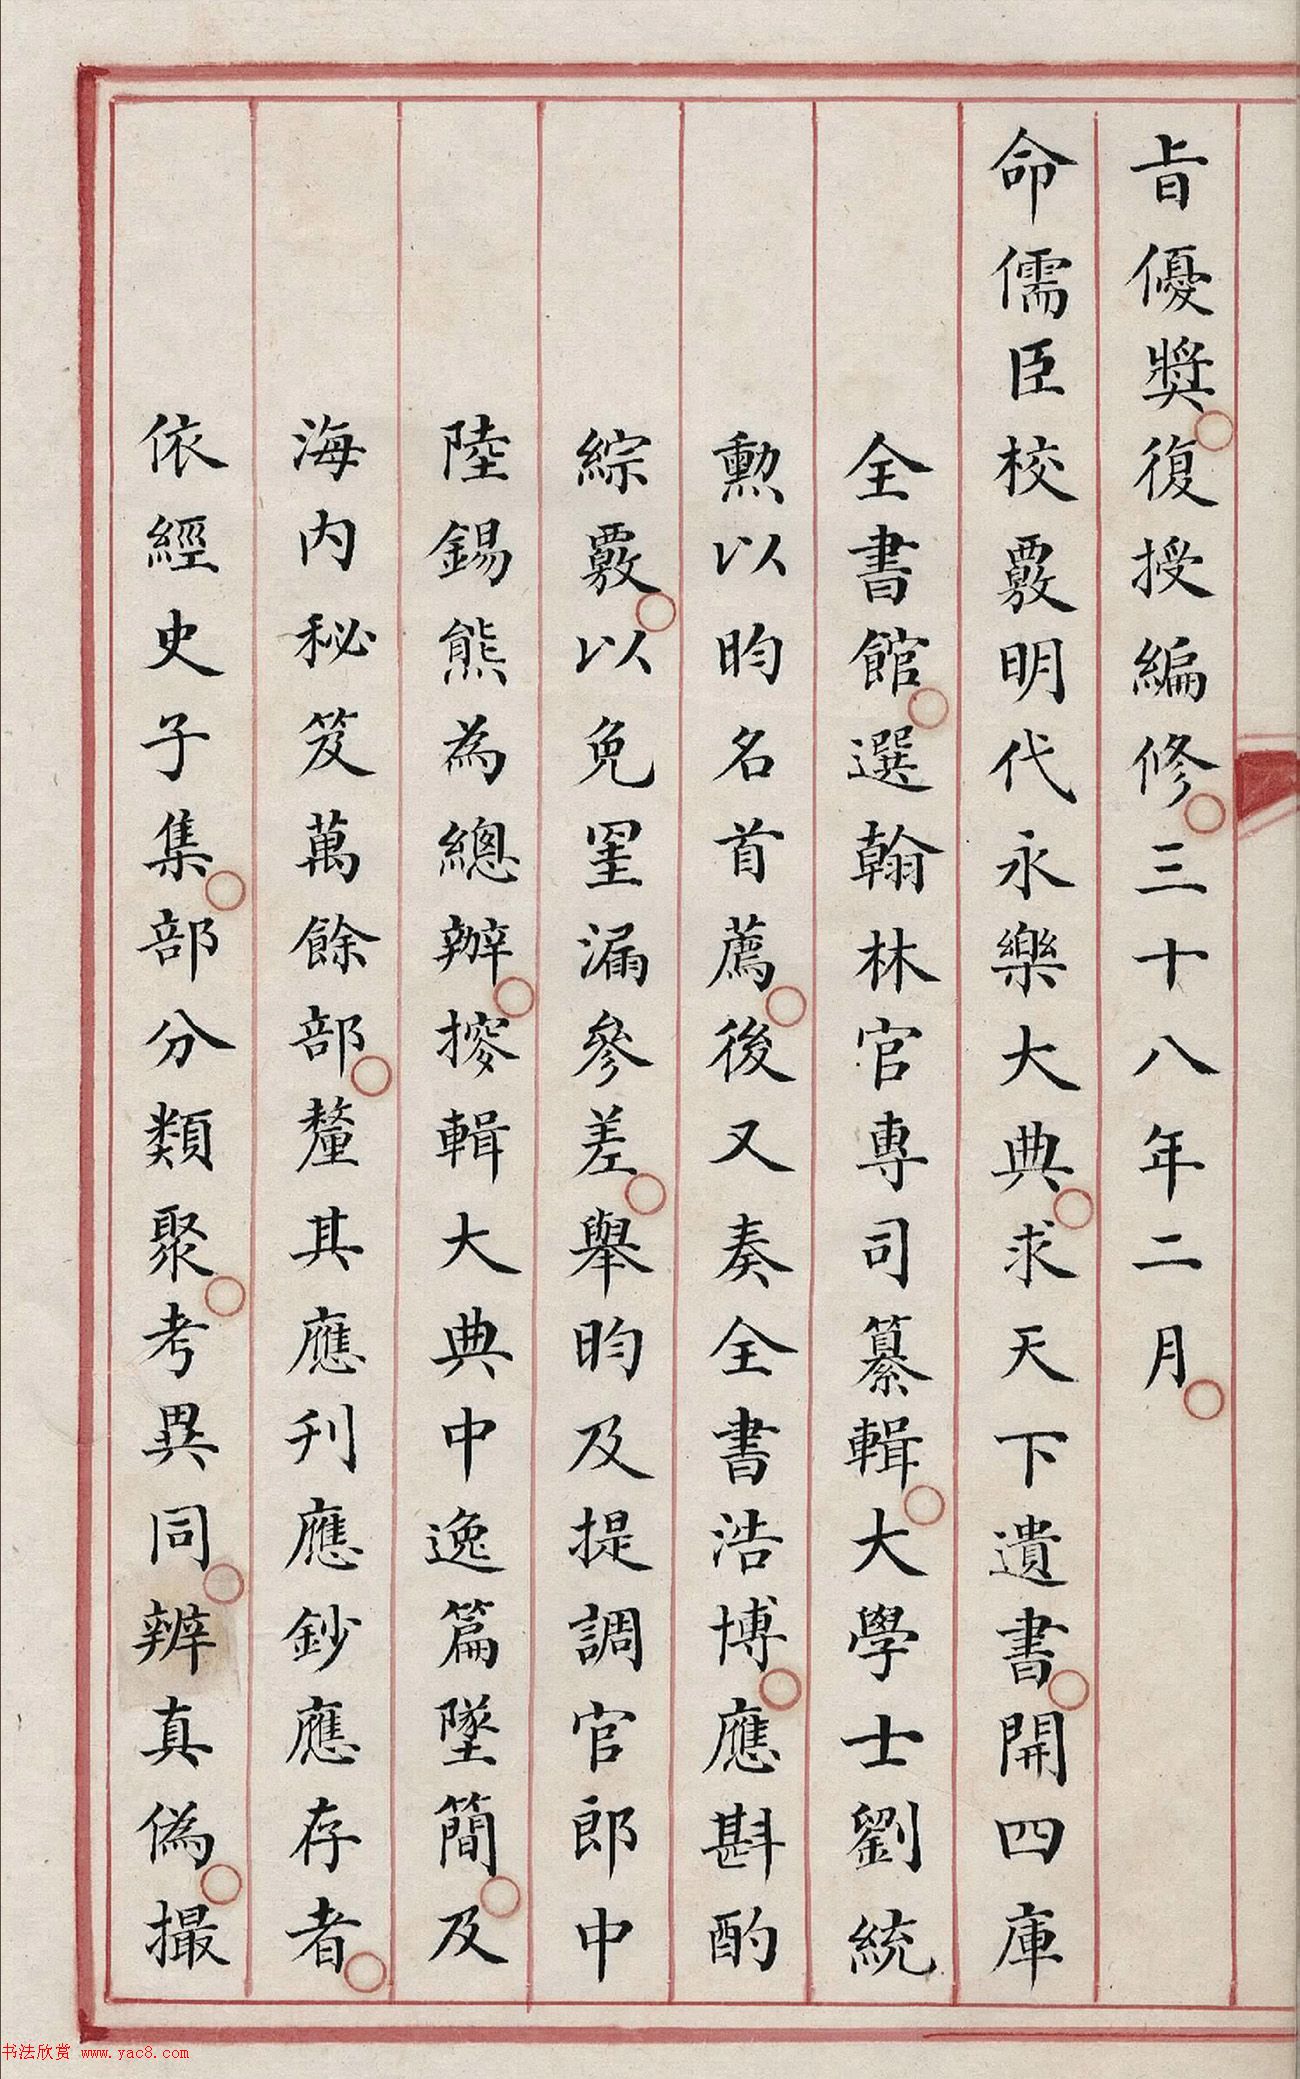 旨優獎復授編修三十八年二月
命儒臣校覈明代永樂大典求天下遺書開四庫
全書館選翰林官專司纂輯大學士劉統
勲以昀名首薦後又奏全書浩博應斟酌
綜覈以免罣漏參差舉昀及提調官郎中
陸錫熊為總辦搜輯大典中逸篇墜簡及
海內秘笈萬餘部釐其應刊應鈔應存者
依經史子集部分類聚考異同辨真偽撮
书法欣赏 www.yac8.com